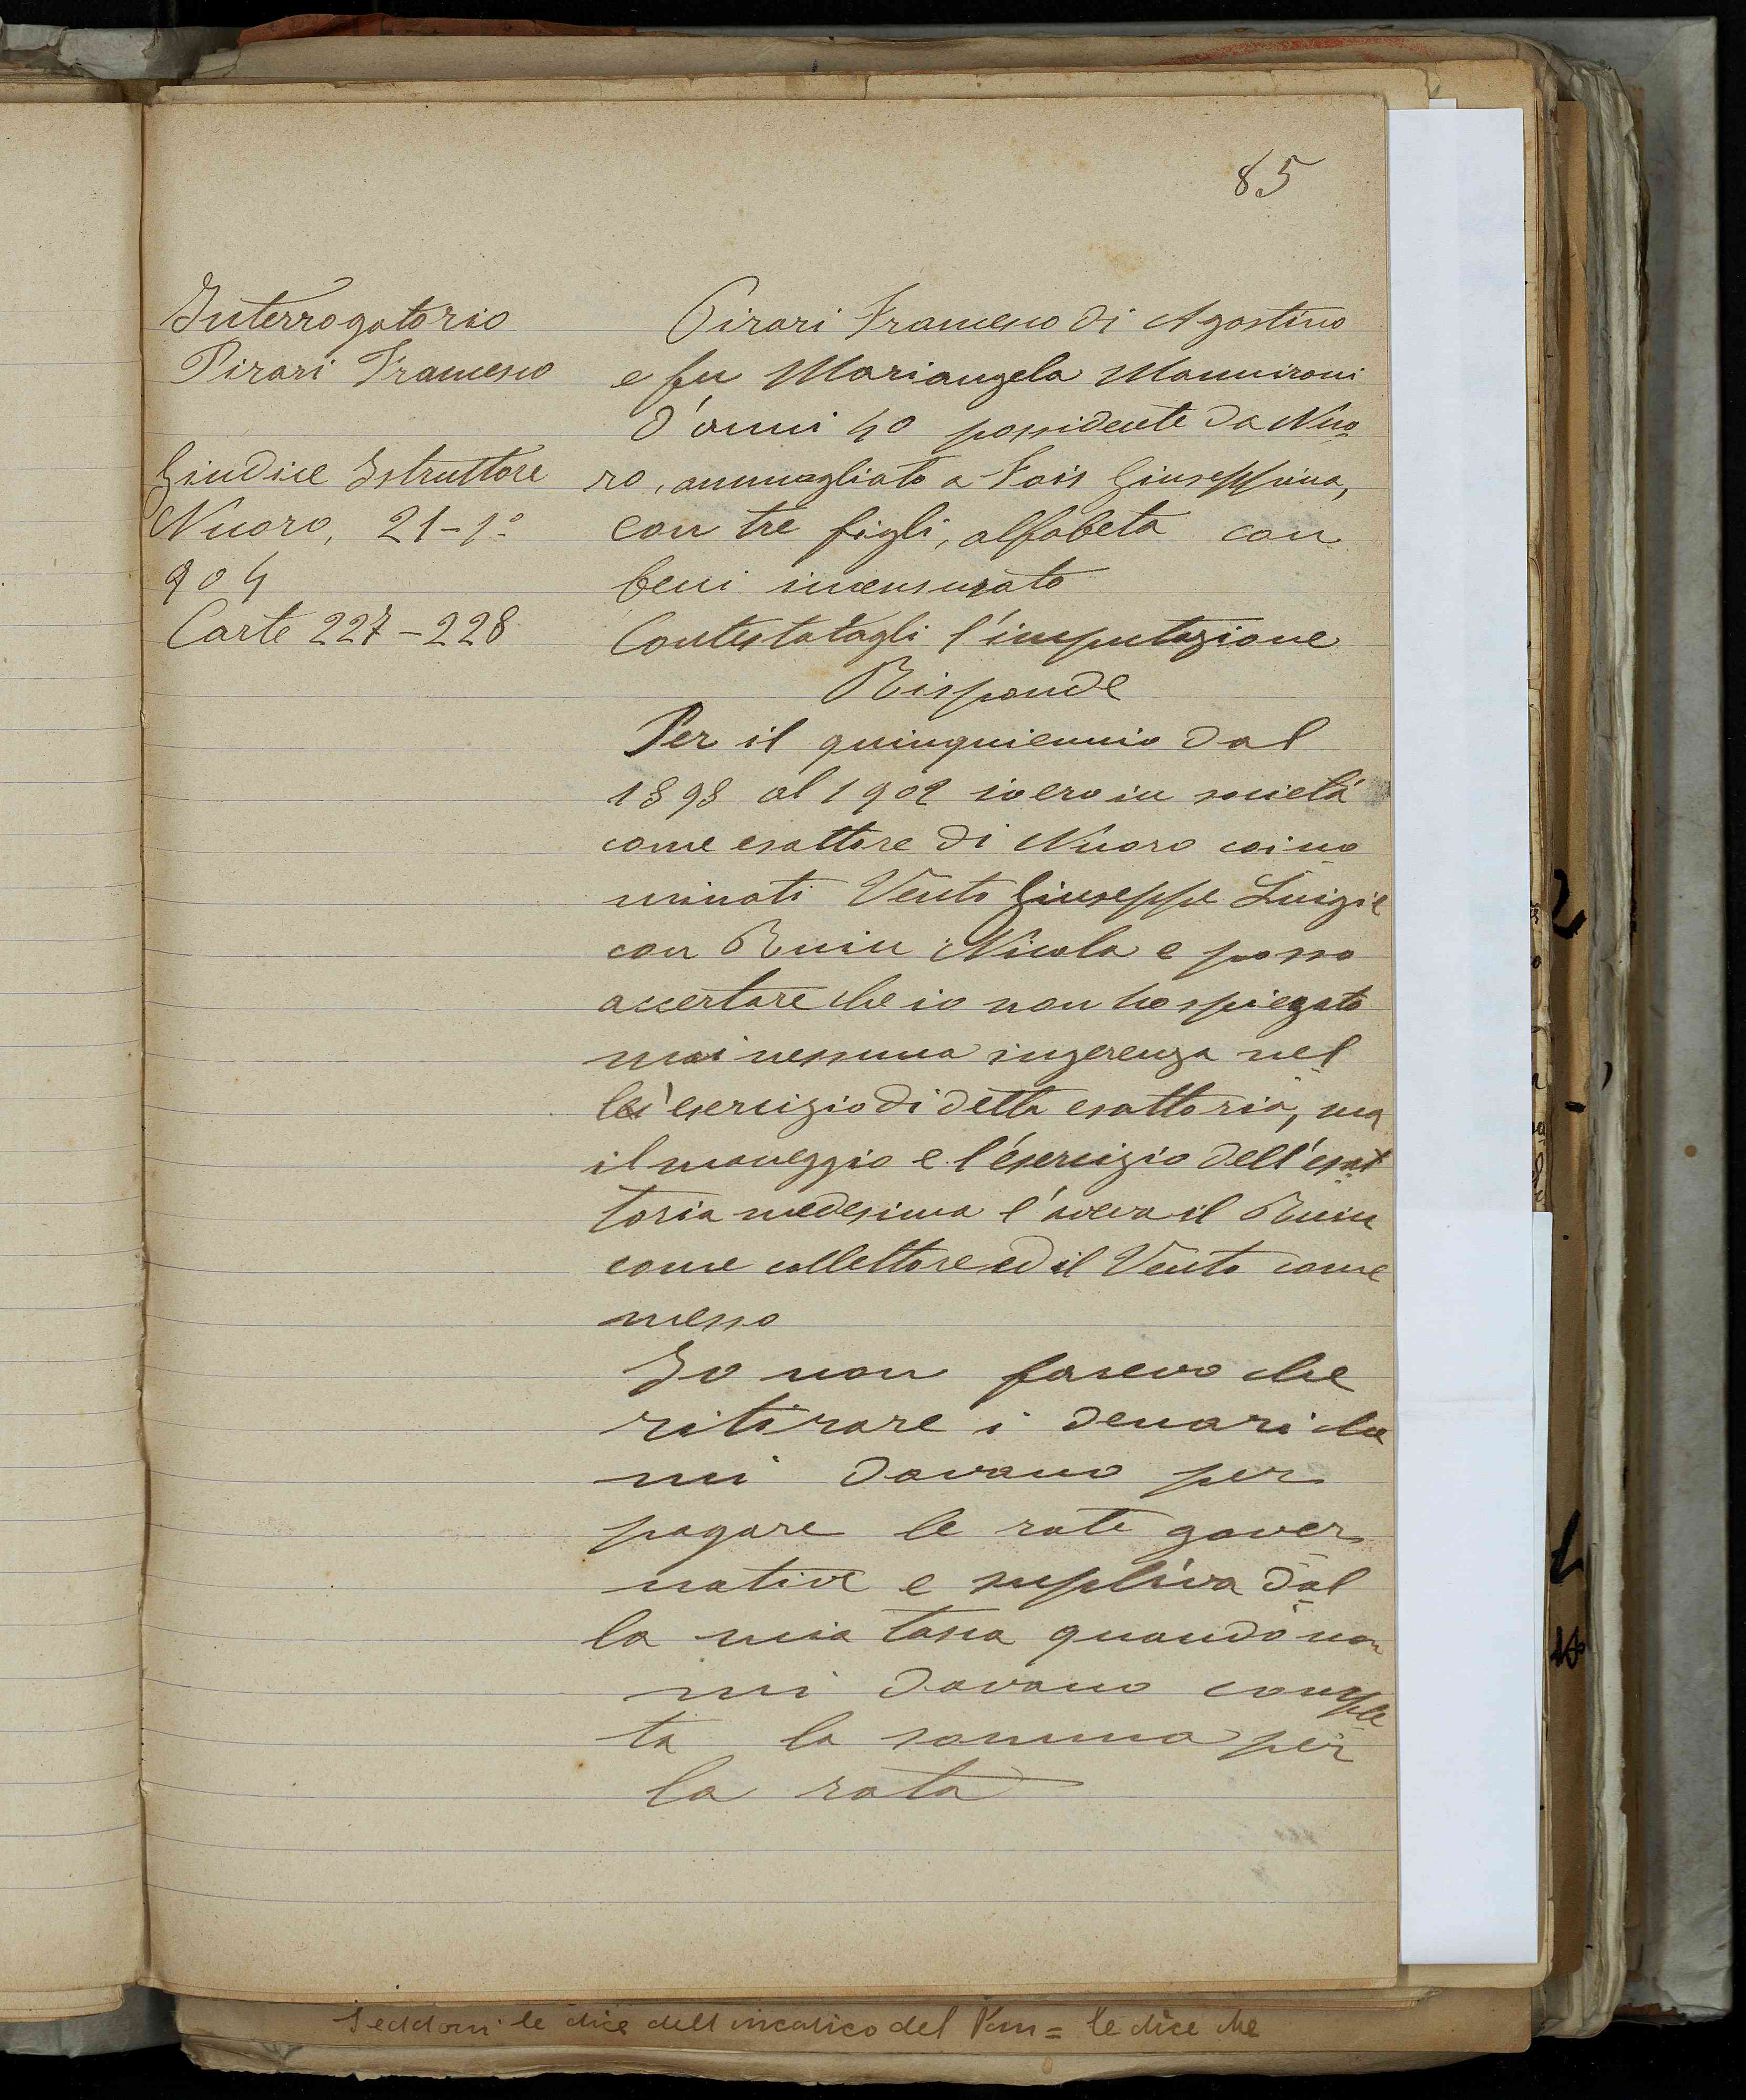 85
Interrogatorio
Pirari Francesco
Giudice Istruttore
Nuoro, 21-1º
904
Carte 227-228
Pirari Francesco di Agostino
e fu Mariangela Mannironi
d'anni 40 possidente da Nuo
ro, ammogliato a Fois Giuseppina,
con tre figli, alfabeta con
beni incensurato
Contestatagli l'imputazione
Risponde
Per il quinquiennio dal
1898 al 1902 io ero in società
come esattore di Nuoro coi no
minati Vento Giuseppe Luigi e
con Ruiu Nicola e posso
accertare che io non ho spiegato
mai nessuna ingerenza nel
l'esercizio di detta esattoria, ma
il maneggio e l'esercizio dell'esat
toria medesima l'aveva il Ruiu
come collettore ed il Vento come
messo
Io non facevo che
ritirare i denari che
mi davano per
pagare le rate gover
native e supliva dal
la mia tasca quando non
mi davano comple
ta la somma per
la rata
le dice dell'incarico del = le dice che